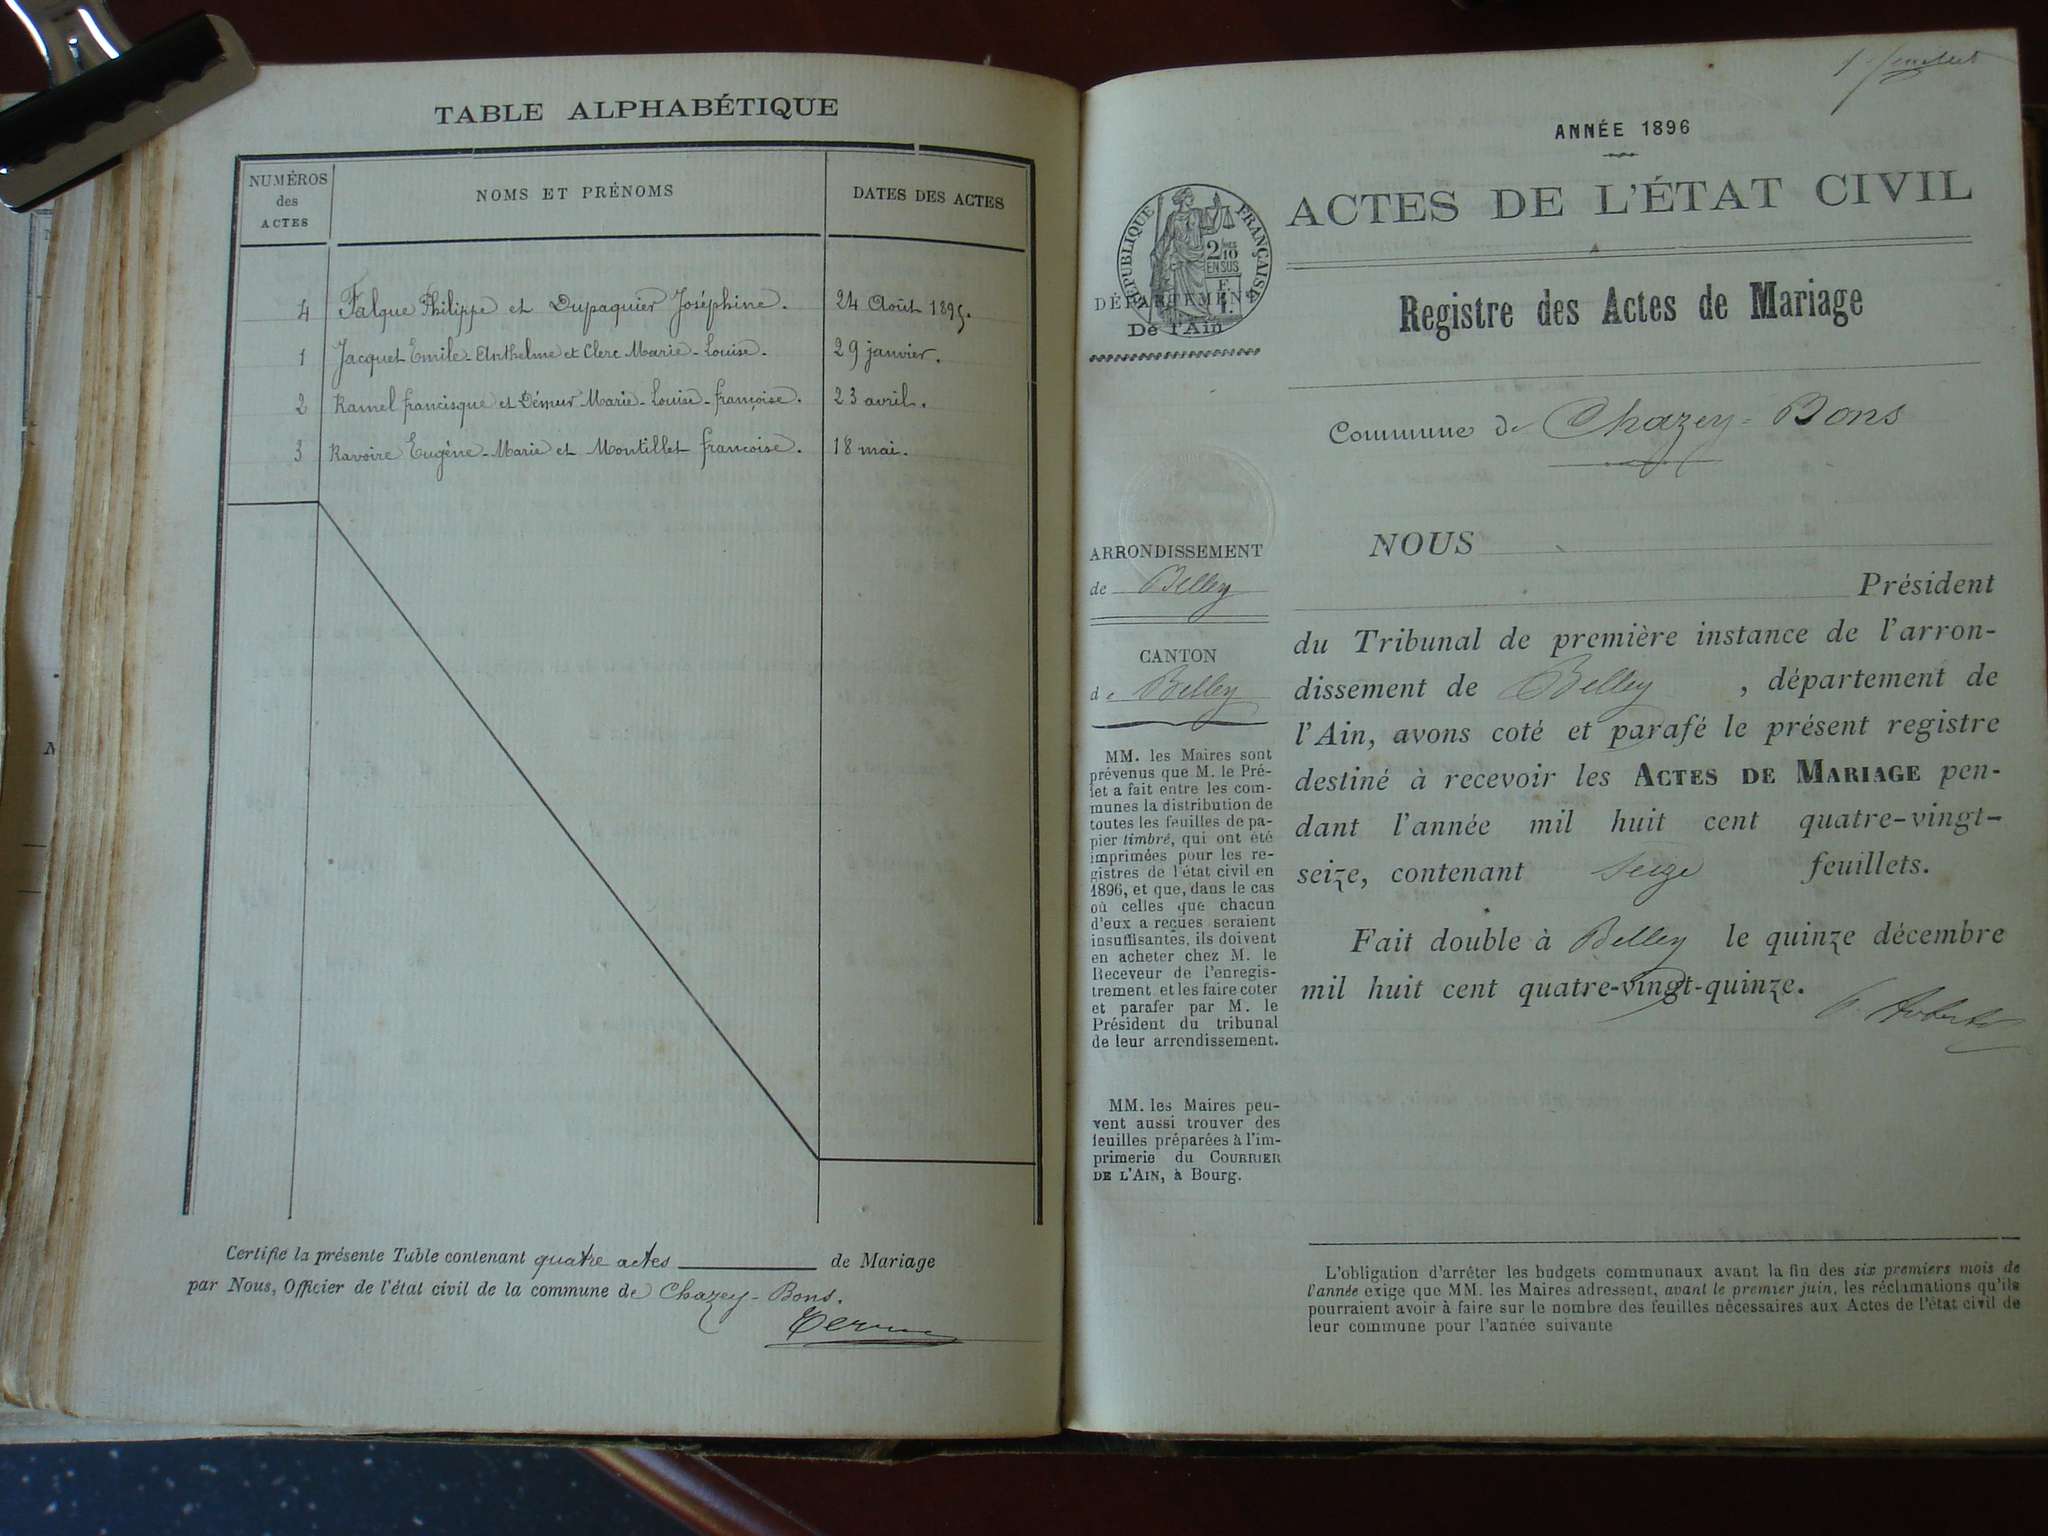 TABLE ALPHABÉTIQUE
NUMÉROS des ACTES
NOMS ET PRÉNOMS
DATES DES ACTES
4 Falque Philippe et Dupaquier Joséphine. 24 Août 1895.
1 Jacquet Emile-Anthelme et Clerc Marie-Louise. 29 janvier.
2 Ramel francisque et Démeur Marie-Louise-françoise. 23 avril.
3 Ravoire Eugène-Marie et Montillet francoise. 18 mai.
Certifie la présente Table contenant quatre actes de Mariage
par Nous, Officier de l'état civil de la commune de Chazey-Bons.
1er feuillet
ANNÉE 1896
ACTES DE L'ÉTAT CIVIL
RÉPUBLIQUE FRANÇAISE
2/10
EN SUS
DÉPARTEMENT
De l'Ain
Registre des Actes de Mariage
Commune de Chazey-Bons
ARRONDISSEMENT
de Belley
CANTON
de Belley
MM. les Maires sont
prévenus que M. le Pré-
fet a fait entre les com-
munes la distribution de
toutes les feuilles de pa-
pier timbré, qui ont été
imprimées pour les re-
gistres de l'état civil en
1896, et que, dans le cas
où celles que chacun
d'eux a reçues seraient
insuffisantes, ils doivent
en acheter chez M. le
Receveur de l'enregis-
trement et les faire coter
et parafer par M. le
Président du tribunal
de leur arrondissement.
MM. les Maires peu-
vent aussi trouver des
feuilles préparées à l'im-
primerie du COURRIER
DE L'AIN, à Bourg.
NOUS
Président
du Tribunal de première instance de l'arron-
dissement de Belley, département de
l'Ain, avons coté et parafé le présent registre
destiné à recevoir les ACTES DE MARIAGE pen-
dant l'année mil huit cent quatre-vingt-
seize, contenant Seize feuillets.
Fait double à Belley le quinze décembre
mil huit cent quatre-vingt-quinze.
L'obligation d'arrêter les budgets communaux avant la fin des six premiers mois de
l'année exige que MM. les Maires adressent, avant le premier juin, les réclamations qu'ils
pourraient avoir à faire sur le nombre des feuilles nécessaires aux Actes de l'état civil de
leur commune pour l'année suivante